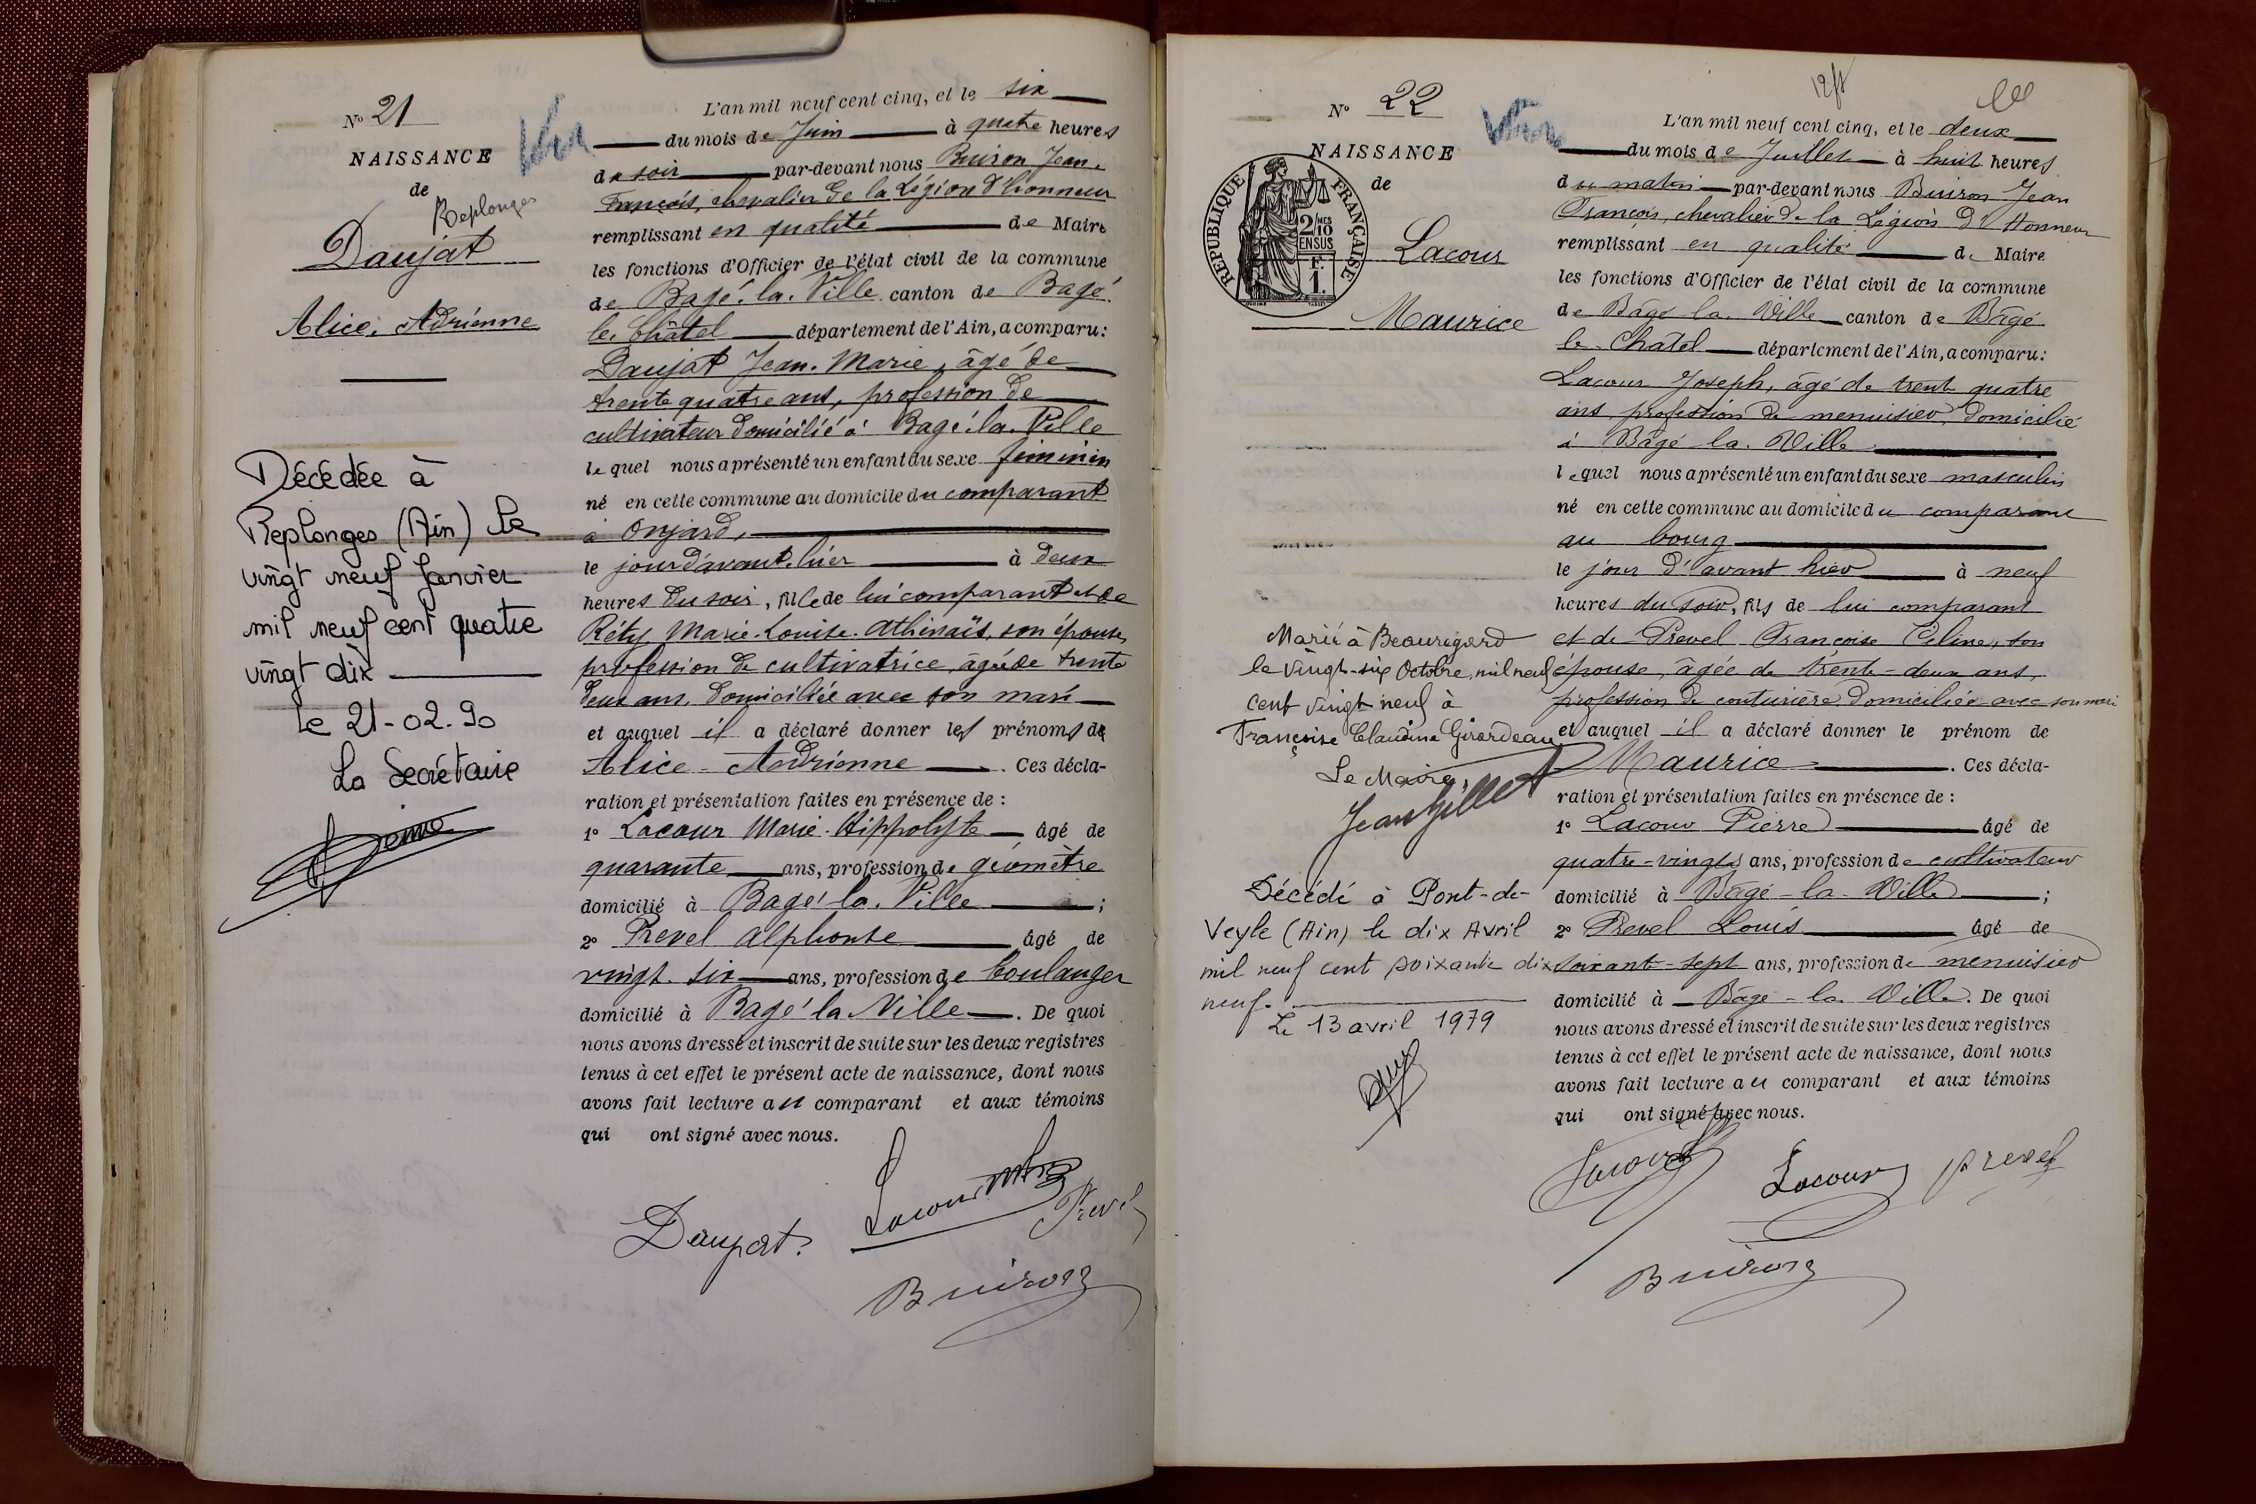 No 21
NAISSANCE
de
Replonges
Daujat
Alice, Adrienne
Décédée à
Replonges (Ain) le
vingt neuf Janvier
mil neuf cent quatre
vingt dix
le 21-02-90
La Secrétaire
Vu
L'an mil neuf cent cinq, et le six
du mois de Juin à quatre heures
du soir par-devant nous Buiron Jean-
François, chevalier de la Légion d'honneur
remplissant en qualité de Maire
les fonctions d'Officier de l'état civil de la commune
de Bagé-la-Ville canton de Bagé
le-Châtel département de l'Ain, a comparu:
Daujat Jean-Marie, âgé de
trente quatre ans, profession de
cultivateur domicilié à Bagé-la-Ville
lequel nous a présenté un enfant du sexe féminin
né en cette commune au domicile du comparant
à Onjard,
le jour d'avant-hier à deux
heures du soir, fille de lui comparant et de
Réty Marie-Louise-Athénaïs, son épouse,
profession de cultivatrice, âgée de trente
deux ans, domiciliée avec son mari
et auquel il a déclaré donner les prénoms de
Alice-Adrienne. Ces décla-
ration et présentation faites en présence de :
1º Lacour Marie-Hippolyte âgé de
quarante ans, profession de géomètre
domicilié à Bagé-la-Ville ;
2º Prevel Alphonse âgé de
vingt-six ans, profession de boulanger
domicilié à Bagé la Ville. De quoi
nous avons dressé et inscrit de suite sur les deux registres
tenus à cet effet le présent acte de naissance, dont nous
avons fait lecture au comparant et aux témoins
qui ont signé avec nous.
Lacour
Prevel
Daujat.
Buiron
No 22
NAISSANCE
de
RÉPUBLIQUE FRANÇAISE
2/10
EN SUS
F.
1.
Lacour
Maurice
Marié à Beauregard
le vingt-six Octobre, mil neuf
cent vingt neuf à
Françoise Claudine Girardeau
Le Maire,
Jean Gillet
Décédé à Pont-de-
Veyle (Ain) le dix Avril
mil neuf cent soixante dix
neuf.
Le 13 avril 1979
L'an mil neuf cent cinq, et le deux
du mois de Juillet à huit heures
du matin par-devant nous Buiron Jean
François, chevalier de la Légion d'Honneur
remplissant en qualité de Maire
les fonctions d'Officier de l'état civil de la commune
de Bâgé la Ville canton de Bâgé
le Châtel département de l'Ain, a comparu:
Lacour Joseph, âgé de trent quatre
ans profession de menuisier domicilié
à Bâgé la Ville
lequel nous a présenté un enfant du sexe masculin
né en cette commune au domicile du comparant
au bourg
le jour d'avant hier à neuf
heures du soir, fils de lui comparant
et de Prevel Françoise Céline, son
épouse, âgée de trente-deux ans,
profession de couturière domiciliée avec son mari
et auquel il a déclaré donner le prénom de
Maurice. Ces décla-
ration et présentation faites en présence de :
1º Lacour Pierre âgé de
quatre-vingts ans, profession de cultivateur
domicilié à Bâgé-la-Ville ;
2º Prevel Louis âgé de
soixant-sept ans, profession de menuisier
domicilié à Bâgé-la Ville. De quoi
nous avons dressé et inscrit de suite sur les deux registres
tenus à cet effet le présent acte de naissance, dont nous
avons fait lecture au comparant et aux témoins
qui ont signé avec nous.
Lacour
Lacour
Prevel
Buiron